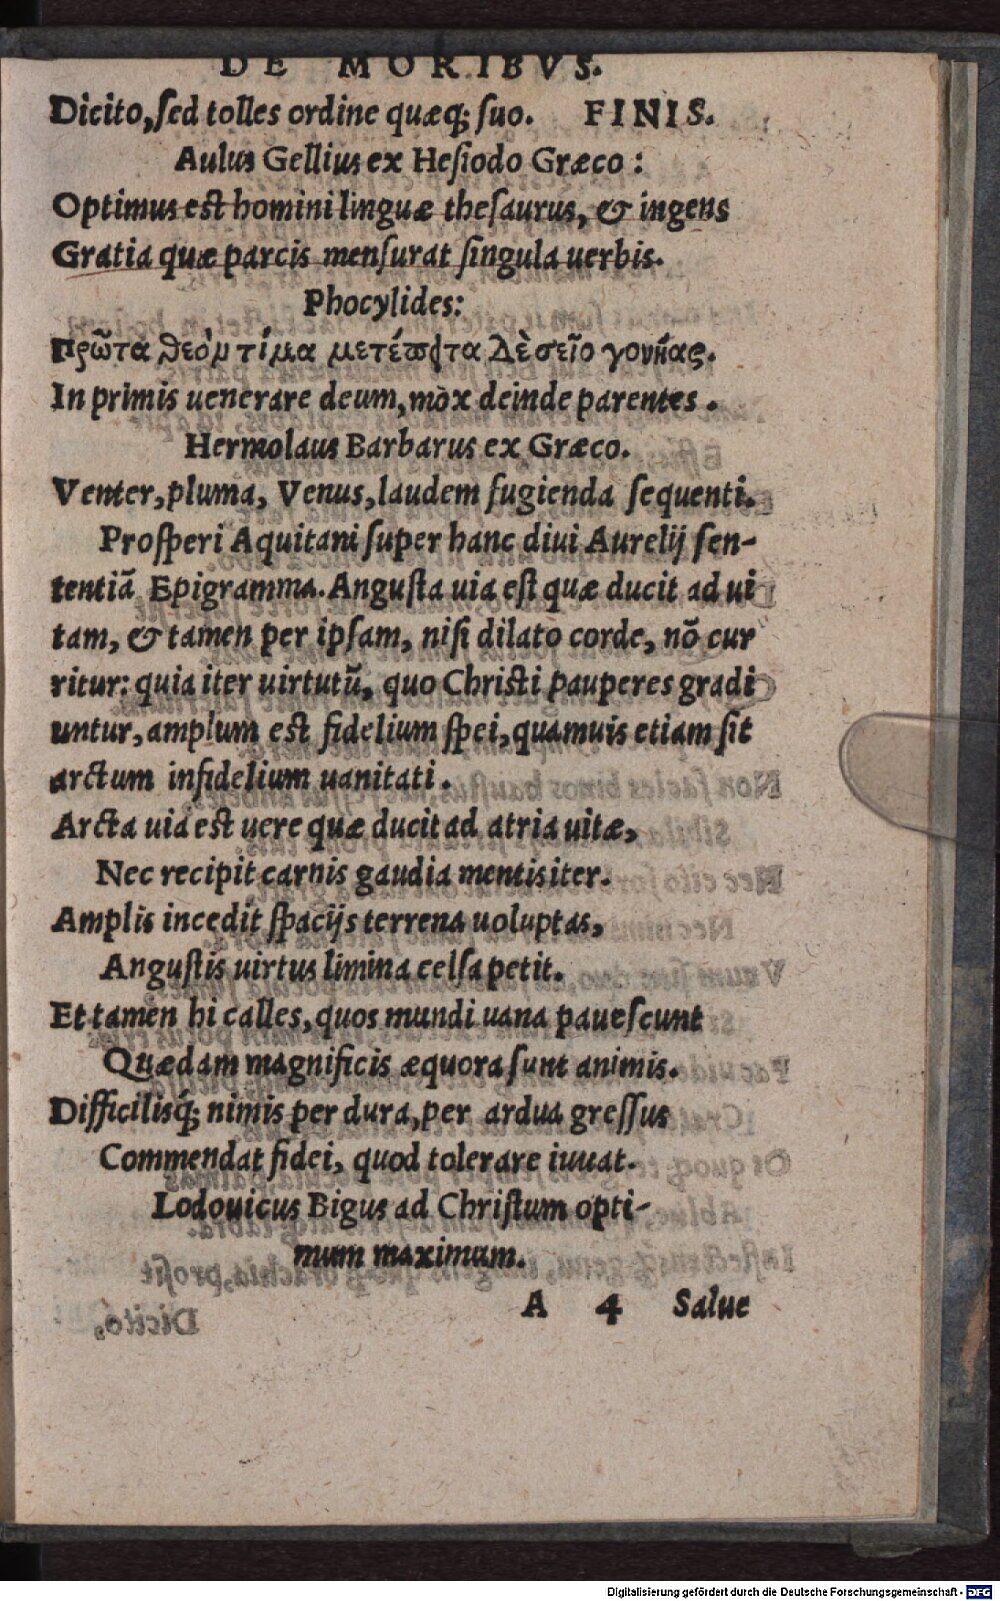 DE MORIBVS.
Dicito, sed tolles ordine quæq; suo. FINIS.
Aulus Gellius ex Hesiodo Græco:
Optimus est homini linguæ thesaurus, & ingens
Gratia quæ parcis mensurat singula uerbis.
Phocylides:
Πρῶτα θεὸμ τίμα μετέπειτα δὲ σεῖο γονῆας.
In primis uenerare deum, mox deinde parentes.
Hermolaus Barbarus ex Græco.
Venter, pluma, Venus, laudem fugienda sequenti.
Prosperi Aquitani super hanc diui Aurelij sen-
tentiã Epigramma. Angusta uia est quæ ducit ad ui
tam, & tamen per ipsam, nisi dilato corde, nõ cur
ritur: quia iter uirtutũ, quo Christi pauperes gradi
untur, amplum est fidelium spei, quamuis etiam sit
arctum infidelium uanitati.
Arcta uia est uere quæ ducit ad atria uitæ,
Nec recipit carnis gaudia mentis iter.
Amplis incedit spacijs terrena uoluptas,
Angustis uirtus limina celsa petit.
Et tamen hi calles, quos mundi uana pauescunt
Quædam magnificis æquora sunt animis.
Difficilisq́; nimis per dura, per ardua gressus
Commendat fidei, quod tolerare iuuat.
Lodouicus Bigus ad Christum opti-
mum maximum.
A 4 Salue
Digitalisierung gefördert durch die Deutsche Forschungsgemeinschaft - DFG